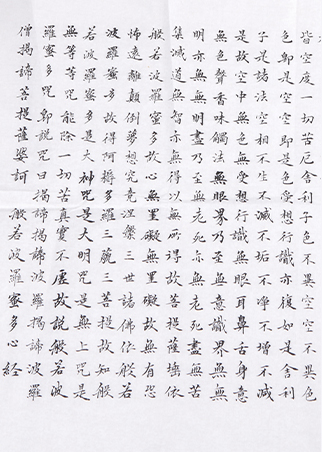 皆空度一切苦厄舍利子色不異空空不異色
色即是空空即是色受想行識亦復如是舍利
子是諸法空相不生不滅不垢不淨不增不減
是故空中無色無受想行識無眼耳鼻舌身意
無色聲香味觸法無眼界乃至無意識界無無
明亦無無明盡乃至無老死亦無老死盡無苦
集滅道無智亦無得以無所得故菩提薩埵依
般若波羅蜜多故心無罣礙無罣礙故無有恐
怖遠離顛倒夢想究竟涅槃三世諸佛依般若
波羅蜜多故得阿耨多羅三藐三菩提故知般
若波羅蜜多是大神咒是大明咒是無上咒是
無等等咒能除一切苦真實不虛故說般若波
羅蜜多咒即說咒曰揭諦揭諦波羅揭諦波羅
僧揭諦菩提薩婆訶 般若波羅蜜多心経